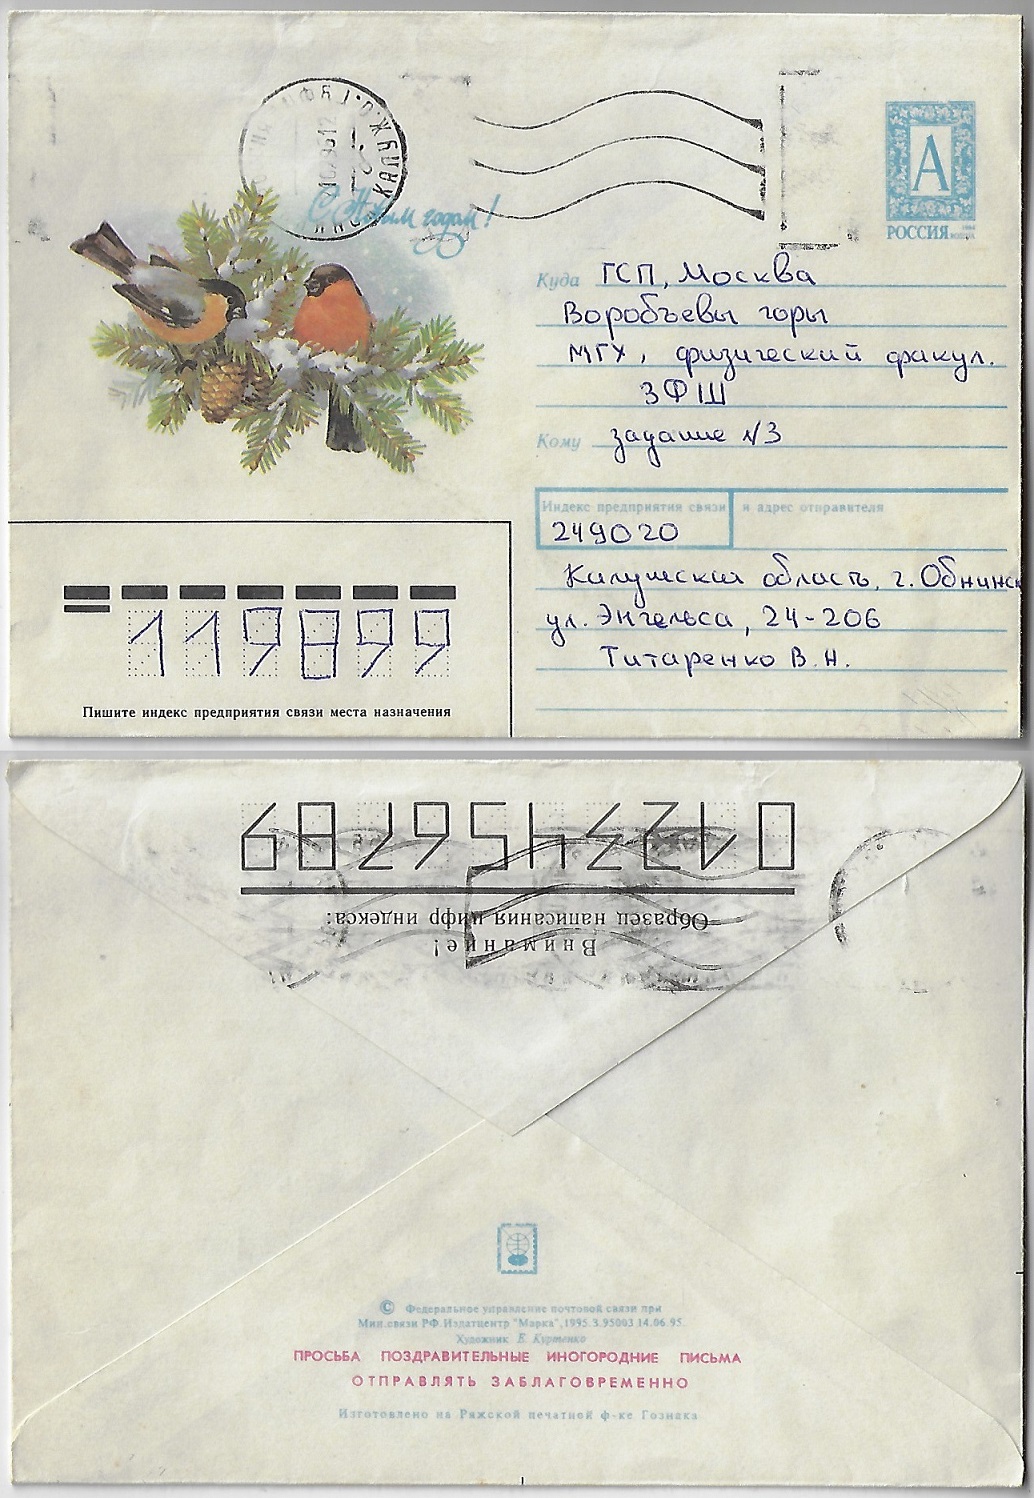 С Новым годом!
А
РОССИЯ
Куда ГСП, Москва
Воробъевы горы
МГУ, физический факул.
ЗФШ
Кому задание №3
Индекс предприятия связи и адрес отправителя
249020
Калужская область, г. Обнинск
ул. Энгельса, 24-206
Титаренко В.Н.
119899
Пишите индекс предприятия связи места назначения
Внимание!
Образец написания цифр индекса:
0123456789
© Федеральное управление почтовой связи при
Мин.связи РФ. Издатцентр "Марка", 1995. З.95003 14.06.95.
Художник Е. Куртенко
ПРОСЬБА ПОЗДРАВИТЕЛЬНЫЕ ИНОГОРОДНИЕ ПИСЬМА
ОТПРАВЛЯТЬ ЗАБЛАГОВРЕМЕННО
Изготовлено на Ряжской печатной ф-ке Гознака